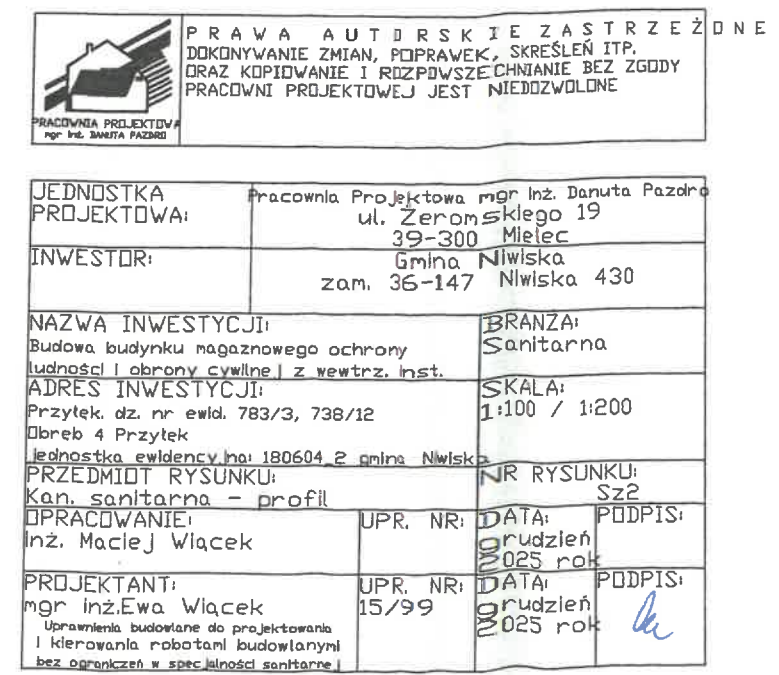 PRAWA AUTORSKIE ZASTRZEŻONE
DOKONYWANIE ZMIAN, POPRAWEK, SKREŚLEŃ ITP.
ORAZ KOPIOWANIE I ROZPOWSZECHNIANIE BEZ ZGODY
PRACOWNI PROJEKTOWEJ JEST NIEDOZWOLONE
PRACOWNIA PROJEKTOWA
mgr inż. DANUTA PAZDRO
JEDNOSTKA PROJEKTOWA:
Pracownia Projektowa mgr inż. Danuta Pazdro
ul. Żeromskiego 19
39-300 Mielec
INWESTOR:
Gmina Niwiska
zam. 36-147 Niwiska 430
NAZWA INWESTYCJI:
Budowa budynku magaznowego ochrony
ludności i obrony cywilnej z wewtrz. inst.
BRANŻA:
Sanitarna
ADRES INWESTYCJI:
Przyłęk. dz. nr ewid. 783/3, 738/12
Obreb 4 Przyłęk
jednostka ewidencyjna: 180604_2 gmina Niwiska
SKALA:
1:100 / 1:200
PRZEDMIOT RYSUNKU:
Kan. sanitarna - profil
NR RYSUNKU:
Sz2
OPRACOWANIE:
inż. Maciej Wiącek
UPR. NR:
DATA:
grudzień
2025 rok
PODPIS:
PROJEKTANT:
mgr inż.Ewa Wiącek
Uprawnienia budowlane do projektowania
i kierowania robotami budowlanymi
bez ograniczeń w specjalności sanitarnej
UPR. NR:
15/99
DATA:
grudzień
2025 rok
PODPIS: